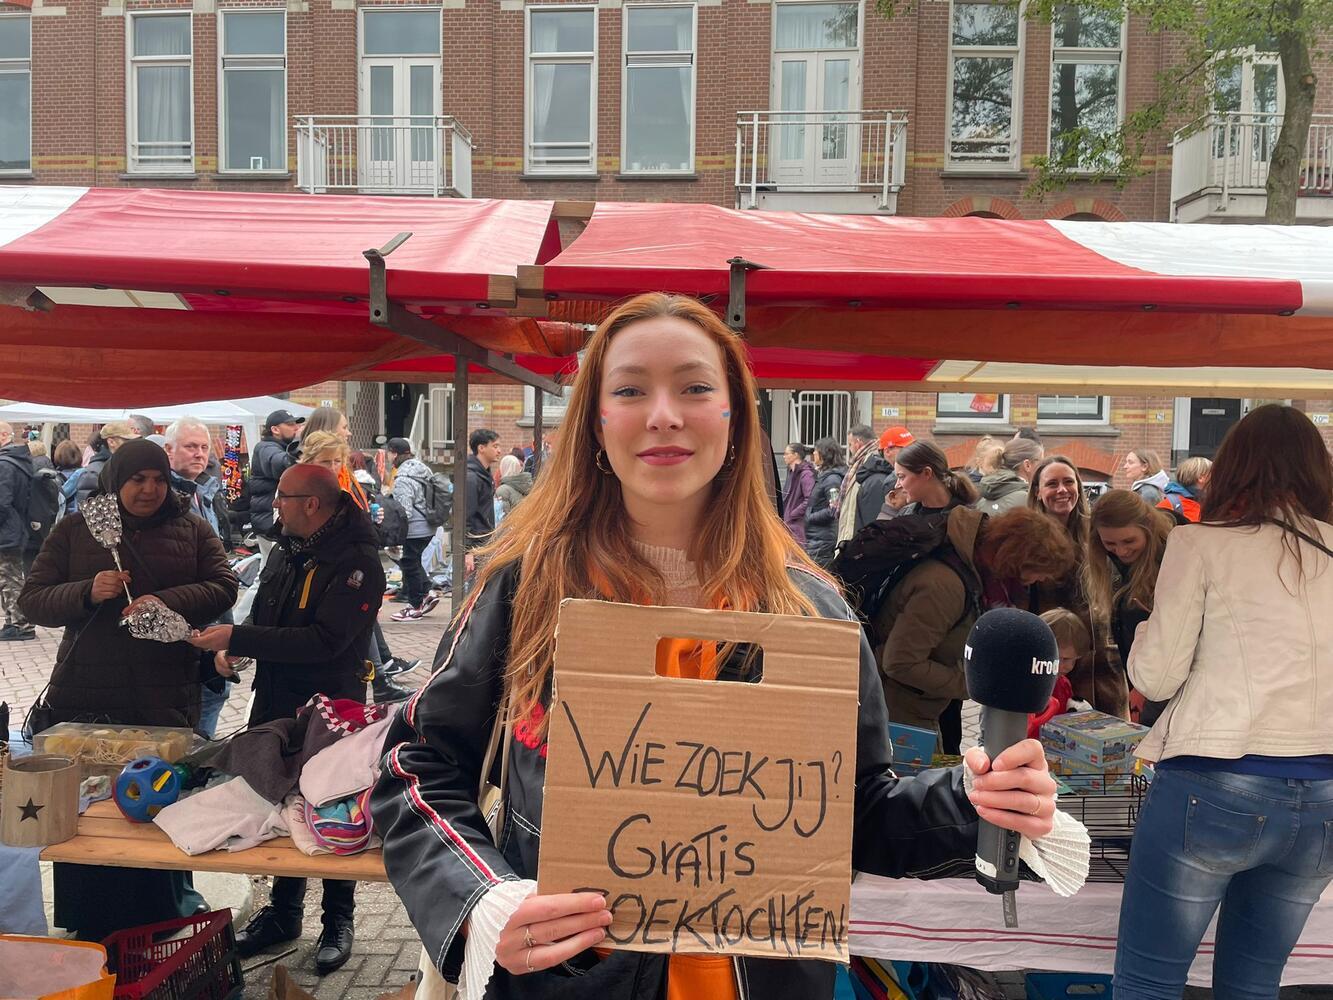 WiE ZOEK JIJ?
GrATis
ZOEKTOCHTEN
kro